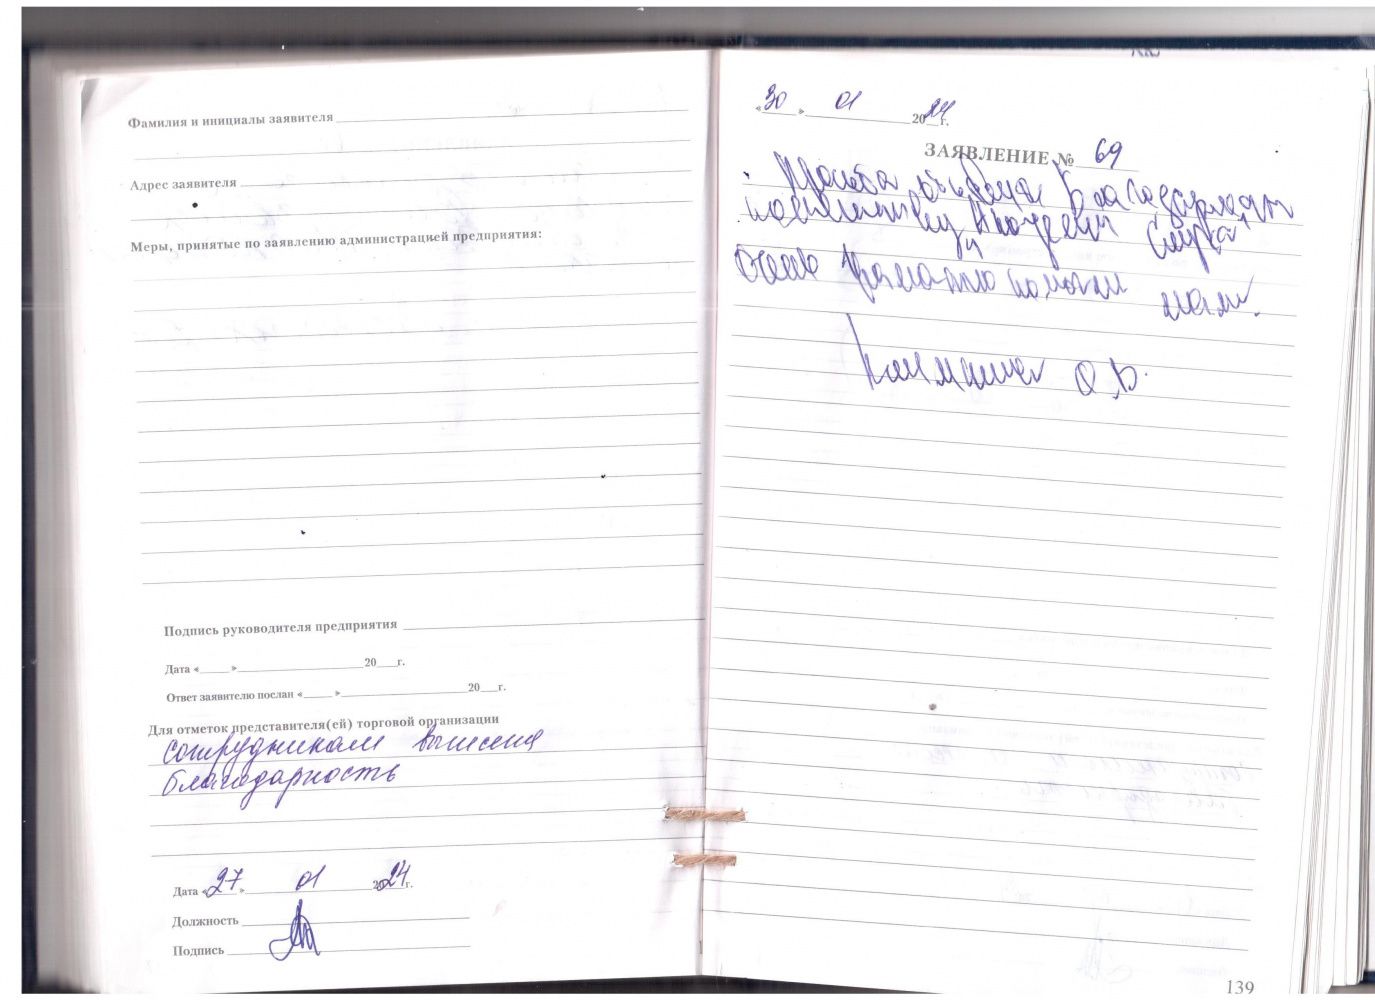 Фамилия и инициалы заявителя
Адрес заявителя
Меры, принятые по заявлению администрацией предприятия:
Подпись руководителя предприятия
Дата « » 20 г.
Ответ заявителю послан « » 20 г.
Для отметок представителя(ей) торговой организации
сотрудникам вынесена
благодарность
Дата «27» 01 2024г.
Должность
Подпись
«30» 01 2024г.
ЗАЯВЛЕНИЕ № 69
Просьба объявить благодарность
Очень грамотно помогли нам.
О.В.
139